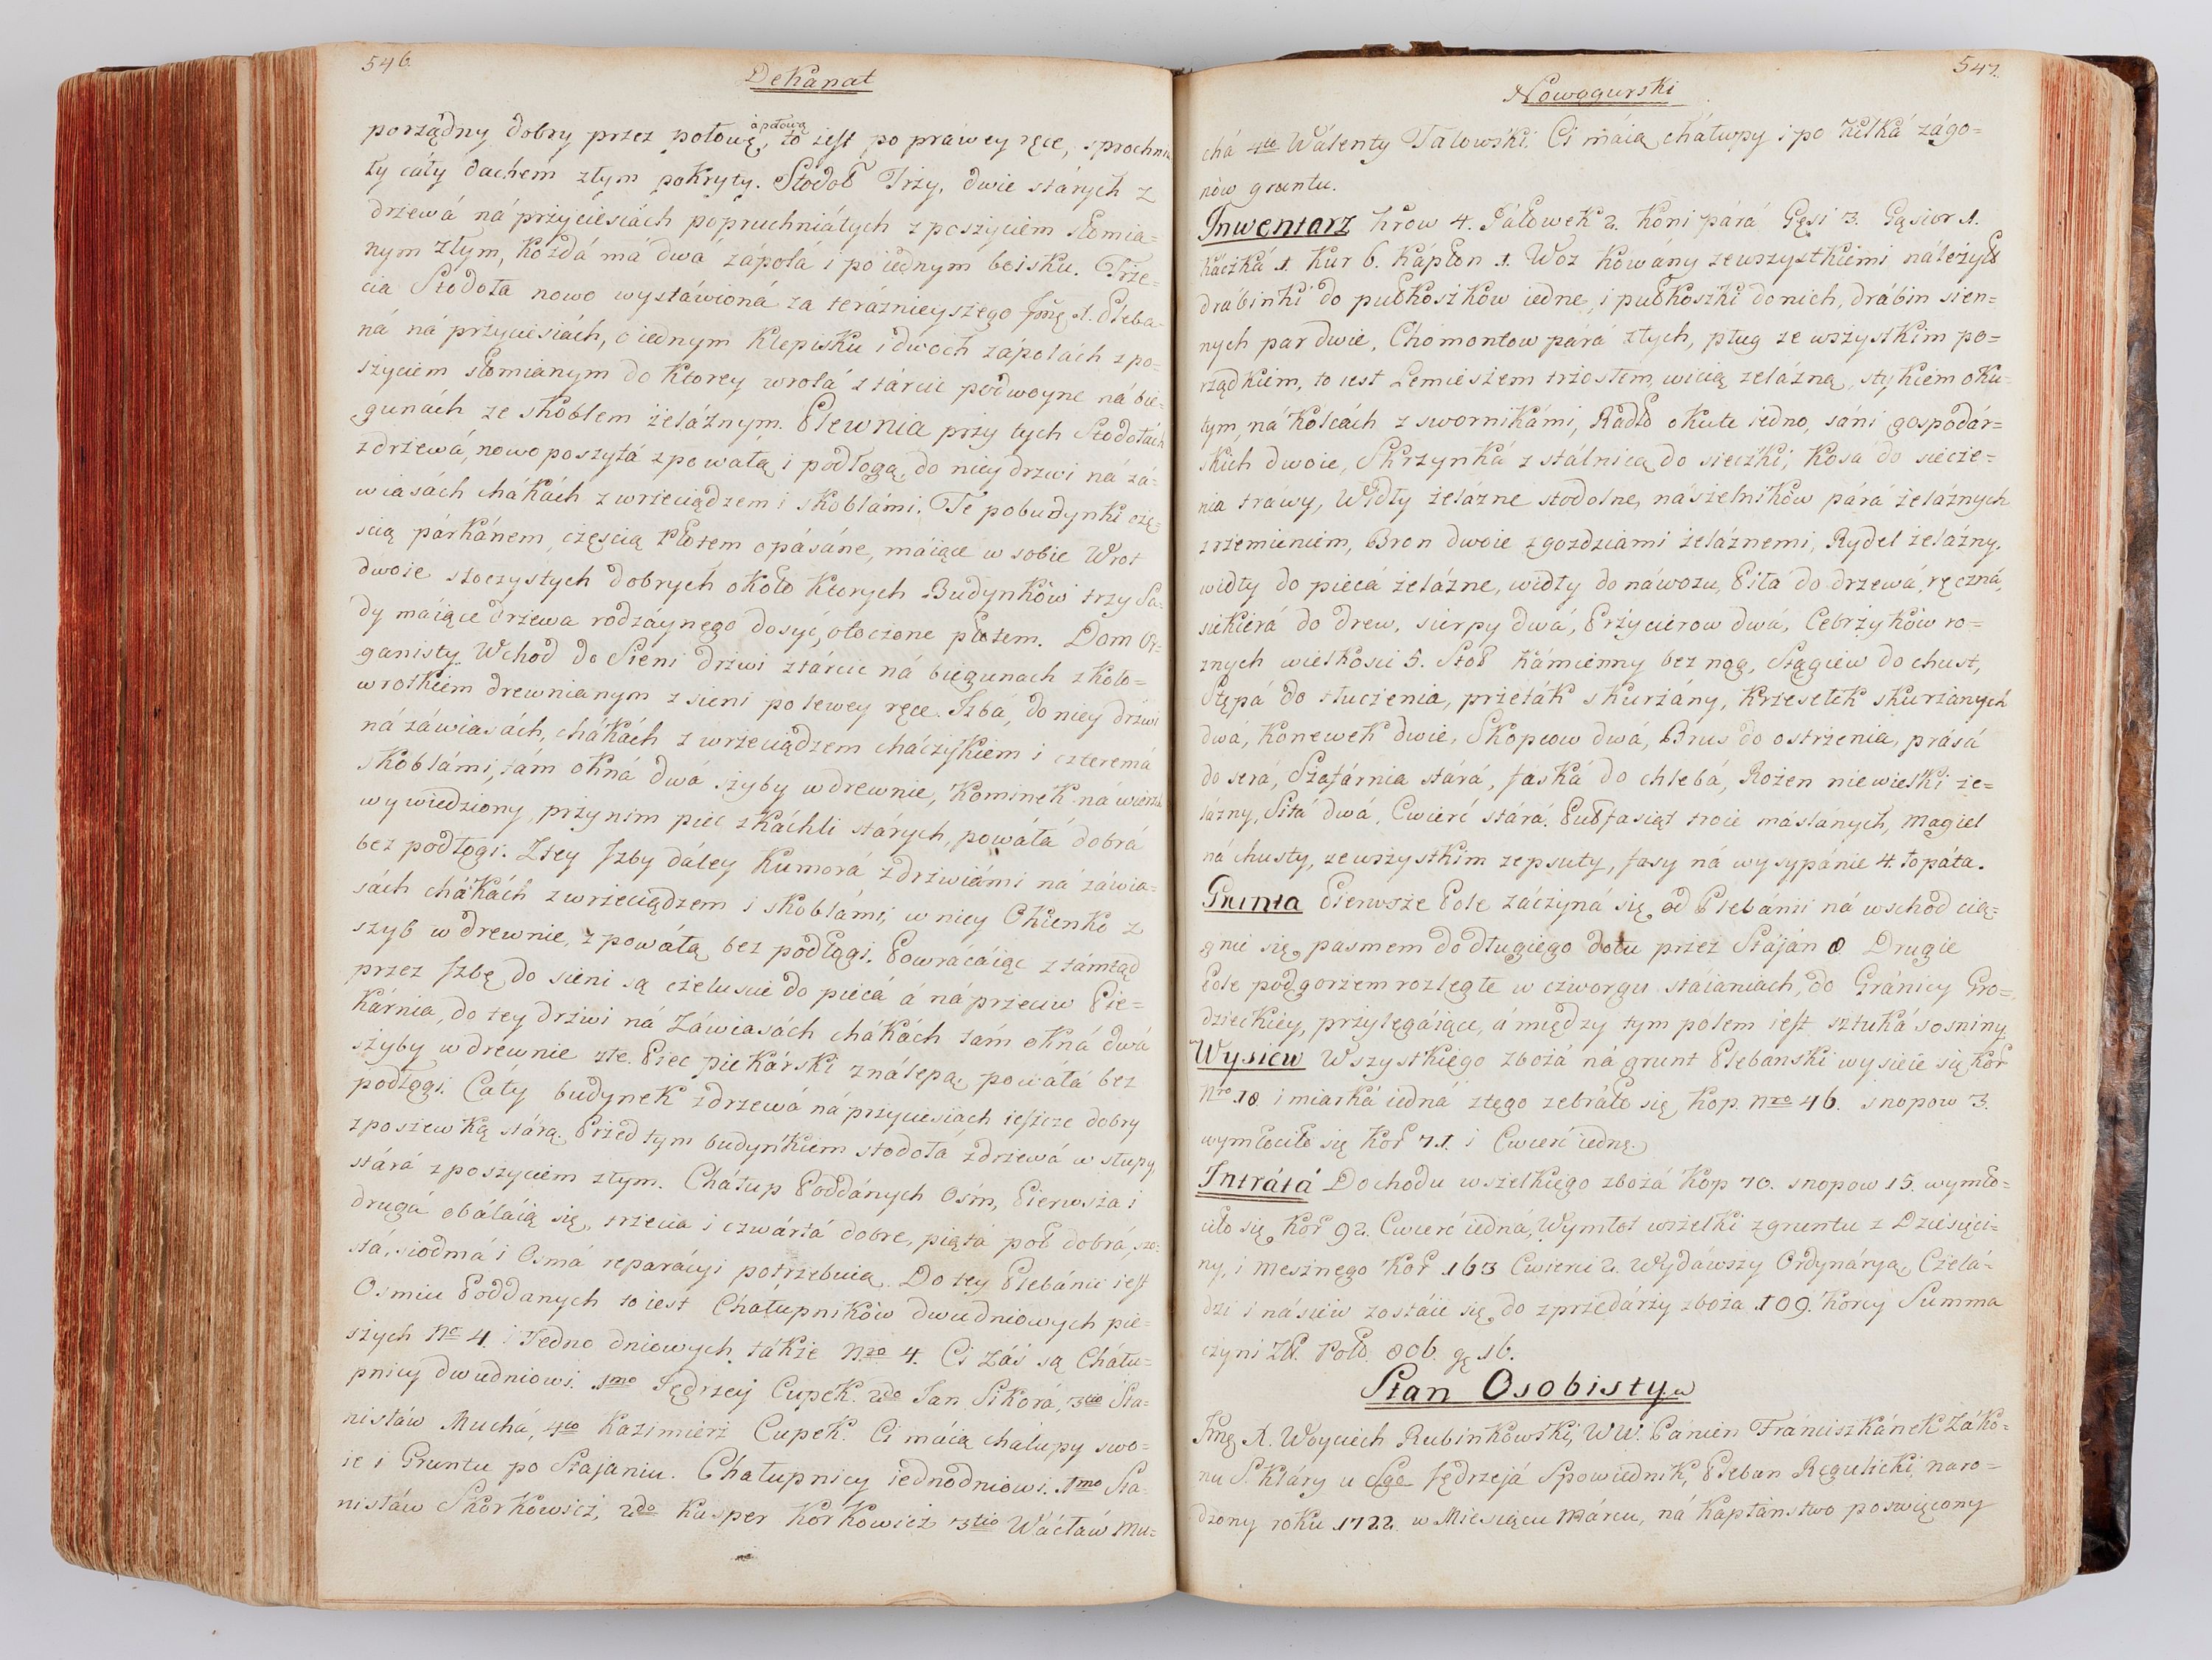 546.
Dekanat
porządny dobry przez połowę, à połową to iest po prawey ręce, sprochnia
ły cáły dachem złym pokryty. Stodoł Trzy, dwie stárych z
drzewá ná przyciesiách popruchniáłych z poszyciem słomia=
nym złym, kożdá má dwá zápolá i po iednym boisku. Trze=
cia Stodoła nowo wystáwioná za teráznieyszego Jmę X. Pleba=
ná ná przyciesiách, o iednym klepisku i dwoch zápolách z po=
szyciem słomianym do ktorey wrotá z tárcic podwoyne ná bie=
gunách ze skoblem żeláznym. Plewnia przy tych Stodołách
z drzewá, nowo poszytá z powałą i podłogą, do niey drzwi ná zá=
wiasách hákách z wrzeciądzem i skoblámi. Te pobudynki czę=
scią párkánem, częscią płotem opásáne, máiące w sobie Wrot
dwoie stoczystych dobrych około ktorych Budynków trzy Sa=
dy máiące drzewa rodzáynego dosyć, otoczone płotem. Dom Or=
ganisty Wchod do Sieni drzwi z tárcic ná biegunach z koło=
wrotkiem drewnianym z sieni po lewey ręce. Izbá, do niey drzwi
ná záwiasách, chákách z wrzeciądzem cháczykiem i czteremá
skoblámi, tám okná dwá szyby w drewnie, Kominek ná wierzch
wywiedziony, przy nim piec z káchli stárych, powáłá dobrá
bez podłogi. Z tey Izby dáley Kumorá z drzwiámi ná záwia=
sách chákách z wrzeciądzem i skoblámi, w niey Okienko z
szyb w drewnie, z powáłą bez podłogi. Powrácáiąc z támtąd
przez Izbę do sieni są czeluscie do piecá á ná przeciw Pie=
kárnia, do tey drzwi ná Záwiasách chákách tám okná dwá
szyby w drewnie złe. Piec piekárski z nálepą, powałá bez
podłogi. Cáły budynek z drzewá ná przyciesiach ieszcze dobry
z poszewką stárą. Przed tym budynkiem stodołá z drzewá w słupy
stárá z poszyciem złym. Cháłup Poddánych Osm, Pierwsza i
drugá obáláią się, trzecia i czwártá dobre, piątá poł dobrá, szo=
stá, siodmá i Osmá reparácyi potrzebuią. Do tey Plebánii iest
Osmiu Poddanych to iest Chałupników dwudniowych pie=
szych Nro 4 i Jedno dniowych tákże Nro 4. Ci záś są Cháłu=
pnicy dwudniowi. 1mo Jędrzey Cupek. 2do Jan Sikorá, 3tio Sta=
nisłáw Muchá, 4to Kazimierz Cupek. Ci máią chałupy swo=
ie i Gruntu po Stajaniu. Chałupnicy iednodniowi. 1mo Sta=
nisłáw Skorkowicz, 2do Kasper Korkowicz 3tio Wácław Mu=
547.
Nowogurski
chá 4to Wálenty Talowski. Ci máią cháłupy i po kilká zágo=
nów gruntu.
Inwentarz krow 4. Jáłowek 2. Koni párá Gęsi 3. Gąsior 1.
Káczká 1. Kur 6. Kápłon 1. Woz kowány ze wszystkiemi náleżyt:
drábinki do pułkoszków iedne, i pułkoszki do nich, drábin sien=
nych par dwie, Chomontow párá złych, pług ze wszystkim po=
rządkiem, to iest Lemieszem trzosłem, wicią żelázną, stykiem oku=
tym, ná kolcách z swornikámi, Rádło okute iedno, sáni gospodár=
skich dwoie, Skrzynká z stálnicą do sieczki, Kosa do siecze=
nia trawy, Widły żelázne stodolne, nászelników párá żeláznych
z rzemieniem, Bron dwoie z gozdziámi żeláznemi, Rydel żelázny,
widły do piecá żelázne, widły do náwozu, Piłá do drzewá, ręczná,
siekierá do drew, sierpy dwá, Przycierow dwá, Cebrzyków ro=
znych wielkosci 5. Stoł kámienny bez nog, Stągiew do chust,
Stępá do słuczenia, przeták skurzány, krzesełek skurzanych
dwá, Konewek dwie, Skopcow dwá, Brus do ostrzenia, prásá
do será, Szafárnia stárá, faská do chlebá, Rożen niewielki że=
lázny, Sitá dwá, Cwierć stárá. Pułfasiąt troie máslánych, magiel
ná chusty, ze wszystkim zepsuty, fasy ná wysypánie 4. łopáta.
Grunta Pierwsze Pole záczyná się od Plebánii ná wschod cią=
gnie się pasmem do długiego dołu przez Stáján 8. Drugie
Pole podgorzem rozległe w czworgu stáianiach, do Gránicy Gro=
dzieckiey, przylegáiące, á między tym polem iest sztuká sosniny.
Wysiew Wszystkiego zbożá ná grunt Plebanski wysieie się kor
Nro 18 i miarká iedná z tego zebráło się kop. Nro 46. snopow 3.
wymłóciło się kor 71 i Cwierć iedną.
Intrátá Dochodu wszelkiego zbożá kop 70. snopow 15. wymło=
ciło się kor 92. Cwierć iedná, Wymłot wszelki z gruntu z Dziesięci=
ny, i mesznego kor 163 Cwierci 2. Wydáwszy Ordynáryą, Czelá=
dzi i nasiew zostáie się do zprzedáży zboża 109. korcy Summa
czyni Zł. Pol. 806. gr 16.
Stan Osobisty
Jmę X. Woyciech Rubinkowski, WW. Pánien Fránciszkánek Záko=
nu S. Kláry u Sgo Jędrzejá Spowiednik, Pleban Regulicki, naro=
dzony roku 1722. w Miesiącu Márcu, ná Kapłánstwo poswięcony